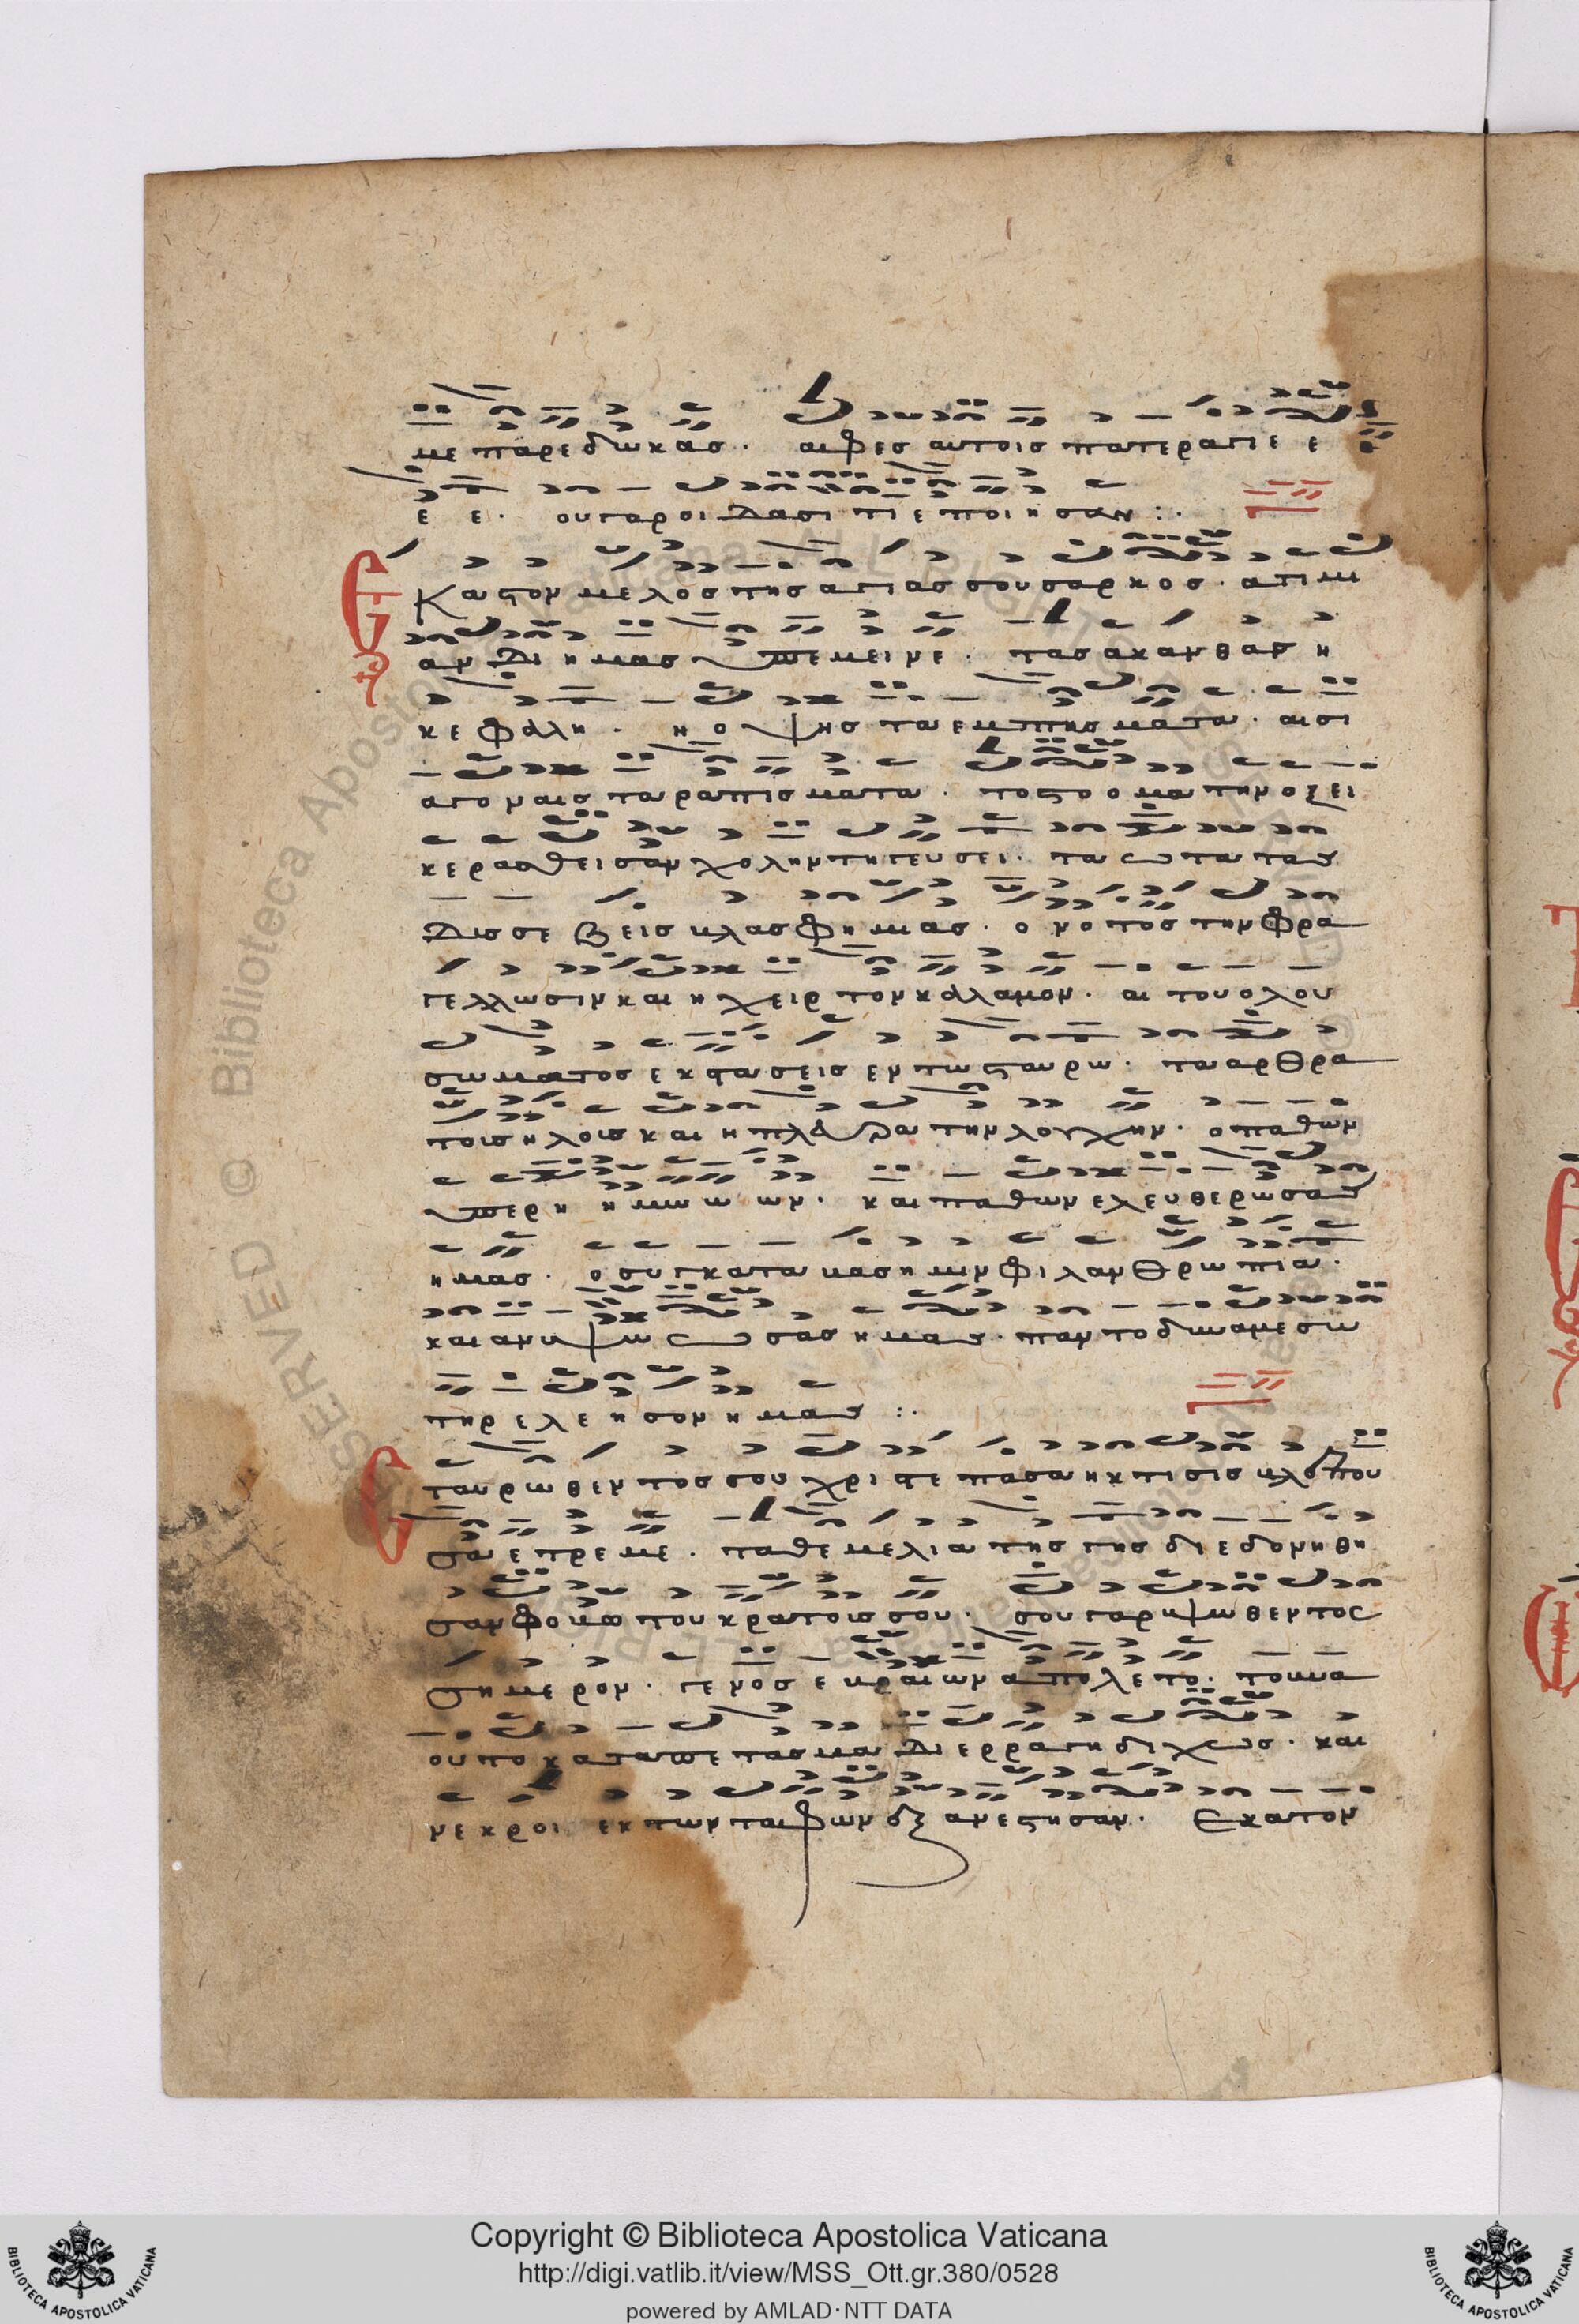 με παρεδωκας. αφες αυτοις πατερ αγιε ε ε
ε ε. ου γαρ οιδασι τι εποιησαν :.
Καστον μελος της αγιας σου σαρκος. ατιμι
αν δι ημας υπεμεινε. τας ακανθας η
κεφαλη. η οψις τα εμπτυσματα. αι σι
αγονες τα ραπισματα. το στομα την οξει
κερασθεισαν χολην τη γευσει. τα ωτα τας
δυσσεβεις βλασφημιας. ο νωτος την φρα
γελλωσιν και η χειρ τον καλαμον. αι του ολου
σωματος εκτασεις εν τω σταυρω. τα αρθρα
τους ηλους και η πλευρα την λογχην. ο παθων
υπερ η ημω ω ων. και παθων ελευθερωσας
ημας. ο συγκαταβας ημιν φιλανθρωπια.
και ανυψω ω σας ημας. παντοδυναμε σω
τηρ ελεησον ημας :.
ταυρωθεντος σου χριστε πασα η κτισις βλεπου
σα ετρεμε. τα θεμελια της γης διεδονηθη
σαν φοβω του κρατους σου. σου γαρ υψωθεντος
σημερον. γενος εβραιων απωλετο. του να
ου το καταπετασμα διερραγη διχως. και
νεκροι εκ των ταφων εξανεστησαν. Εκατον
Copyright © Biblioteca Apostolica Vaticana
http://digi.vatlib.it/view/MSS_Ott.gr.380/0528
powered by AMLAD·NTT DATA